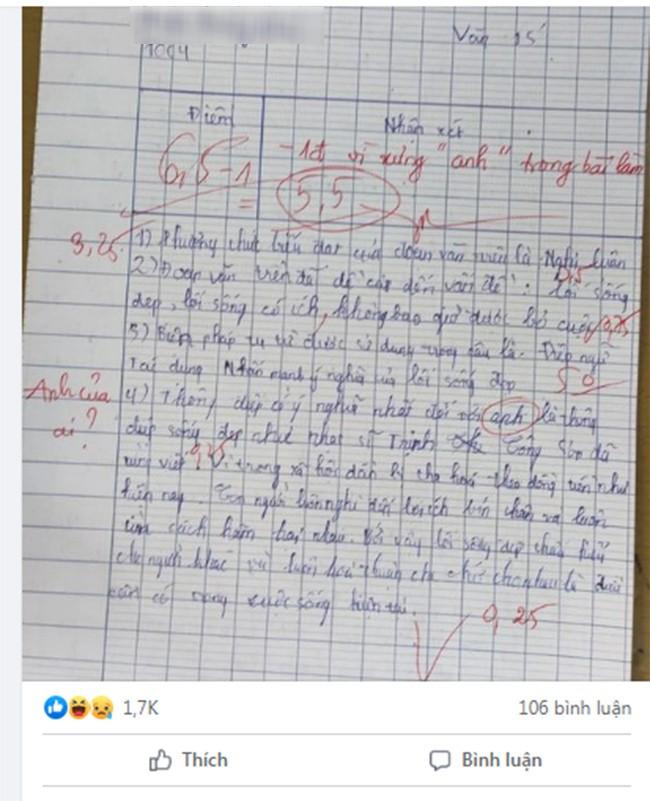 Văn 15'
Điểm
Nhận xét
6,5-1
= 5,5
-1đ vì xưng "anh" trong bài làm
3,25
1) Phương thức biểu đạt của đoạn văn trên là Nghị luận
0,5
2) Đoạn văn trên đã đề cập đến vấn đề: lối sống
đẹp, lối sống có ích, không bao giờ được bỏ cuộc
3) Biện pháp tu từ được sử dụng trong câu là: Điệp ngữ
Tác dụng Nhấn mạnh ý nghĩa của lối sống đẹp
Anh của
ai?
4) Thông điệp có ý nghĩa nhất đối với anh là thông
điệp sống đẹp như nhạc sĩ Trịnh Công Sơn đã
từng viết. Vì trong xã hội dần bị tha hoá theo dòng tiền như
hiện nay. Con người luôn nghĩ đến lợi ích bản thân và luôn
tìm cách hãm hại nhau. Vì vậy lối sống đẹp
người khác và luôn hoà thuận là điều
cần có trong cuộc sống hiện tại.
0,25
1,7K
106 bình luận
Thích
Bình luận